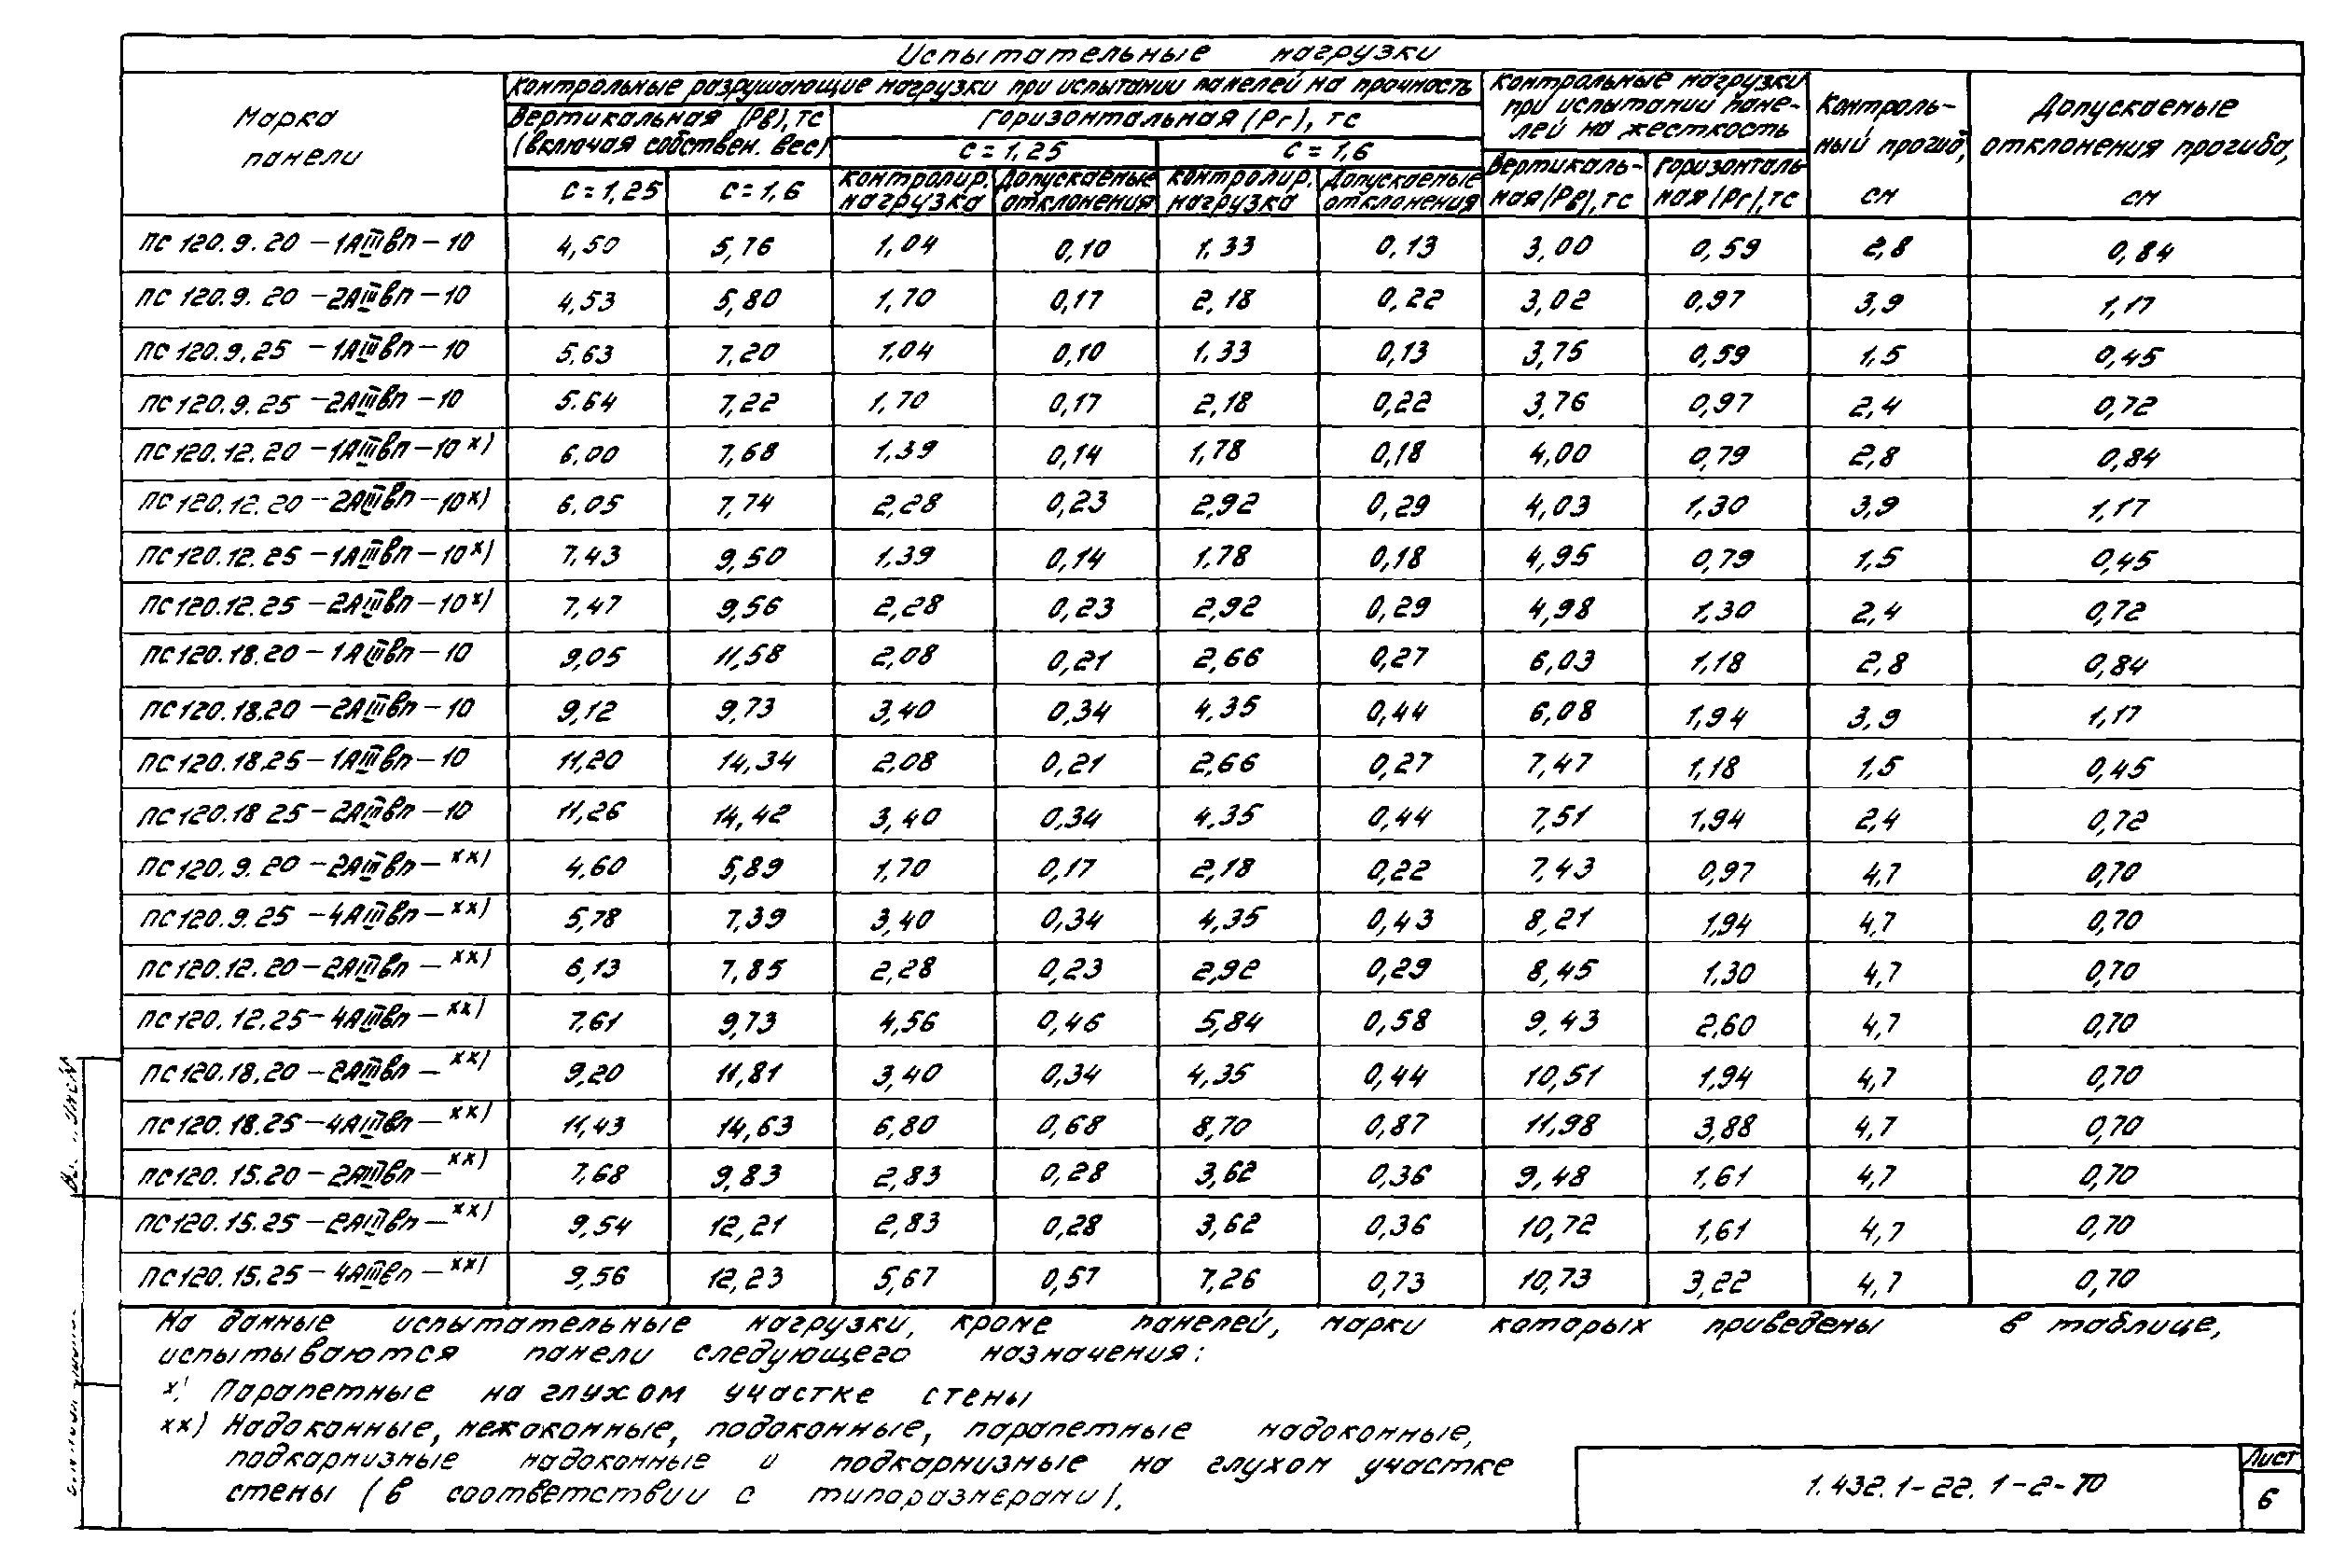 Испытательные нагрузки
Марка панели
Контрольные разрушающие нагрузки при испытании панелей на прочность
Контрольные нагрузки при испытании пане-
лей на жесткость
Контроль-
ный прогиб,
см
Допускаемые
отклонения прогиба,
см
Вертикальная (Рв), тс
(включая собствен. вес)
Горизонтальная (Рг), тс
с = 1,25 с = 1,6
с = 1,25 с = 1,6 контролир. нагрузка Допускаемые отклонения контролир. нагрузка Допускаемые отклонения Вертикаль-
ная (Рв), тс Горизонталь
ная (Рг), тс
ПС 120.9.20 – 1АIIIвп – 10 4,50 5,76 1,04 0,10 1,33 0,13 3,00 0,59 2,8 0,84
ПС 120.9.20 – 2АIIIвп – 10 4,53 5,80 1,70 0,17 2,18 0,22 3,02 0,97 3,9 1,17
ПС 120.9.25 – 1АIIIвп – 10 5,63 7,20 1,04 0,10 1,33 0,13 3,75 0,59 1,5 0,45
ПС 120.9.25 – 2АIIIвп – 10 5.64 7,22 1,70 0,17 2,18 0,22 3,76 0,97 2,4 0,72
ПС 120.12.20 – 1АIIIвп – 10 х) 6.00 7,68 1,39 0,14 1,78 0,18 4,00 0,79 2,8 0,84
ПС 120.12.20 – 2АIIIвп – 10 х) 6.05 7,74 2,28 0,23 2,92 0,29 4,03 1,30 3,9 1,17
ПС 120.12.25 – 1АIIIвп – 10 х) 7,43 9,50 1,39 0,14 1,78 0,18 4,95 0,79 1,5 0,45
ПС 120.12.25 – 2АIIIвп – 10 х) 7,47 9,56 2,28 0,23 2,92 0,29 4,98 1,30 2,4 0,72
ПС 120.18.20 – 1АIIIвп – 10 9,05 11,58 2,08 0,21 2,66 0,27 6,03 1,18 2,8 0,84
ПС 120.18.20 – 2АIIIвп – 10 9,12 9,73 3,40 0,34 4,35 0,44 6,08 1,94 3,9 1,17
ПС 120.18.25 – 1АIIIвп – 10 11,20 14,34 2,08 0,21 2,66 0,27 7,47 1,18 1,5 0,45
ПС 120.18 25 – 2АIIIвп – 10 11,26 14,42 3,40 0,34 4,35 0,44 7,51 1,94 2,4 0,72
ПС 120.9.20 – 2АIIIвп – хх) 4,60 5,89 1,70 0,17 2,18 0,22 7,43 0,97 4,7 0,70
ПС 120.9.25 – 4АIIIвп – хх) 5,78 7,39 3,40 0,34 4,35 0,43 8,21 1,94 4,7 0,70
ПС 120.12.20 – 2АIIIвп – хх) 6,13 7,85 2,28 0,23 2,92 0,29 8,45 1,30 4,7 0,70
ПС 120.12.25 – 4АIIIвп – хх) 7,61 9,73 4,56 0,46 5,84 0,58 9,43 2,60 4,7 0,70
ПС 120.18.20 – 2АIIIвп – хх) 9,20 11,81 3,40 0,34 4,35 0,44 10,51 1,94 4,7 0,70
ПС 120.18.25 – 4АIIIвп – хх) 11,43 14,63 6,80 0,68 8,70 0,87 11,98 3,88 4,7 0,70
ПС 120.15.20 – 2АIIIвп – хх) 7,68 9,83 2,83 0,28 3,62 0,36 9,48 1,61 4,7 0,70
ПС 120.15.25 – 2АIIIвп – хх) 9,54 12,21 2,83 0,28 3,62 0,36 10,72 1,61 4,7 0,70
ПС 120.15.25 – 4АIIIвп – хх) 9,56 12,23 5,67 0,57 7,26 0,73 10,73 3,22 4,7 0,70
На данные испытательные нагрузки, кроме панелей, марки которых приведены в таблице,
испытываются панели следующего назначения:
х) Парапетные на глухом участке стены
хх) Надоконные, межоконные, подоконные, парапетные надоконные,
подкарнизные надоконные и подкарнизные на глухом участке
стены (в соответствии с типоразмерами).
1.432.1-22. 1-2-ТО
Лист
6